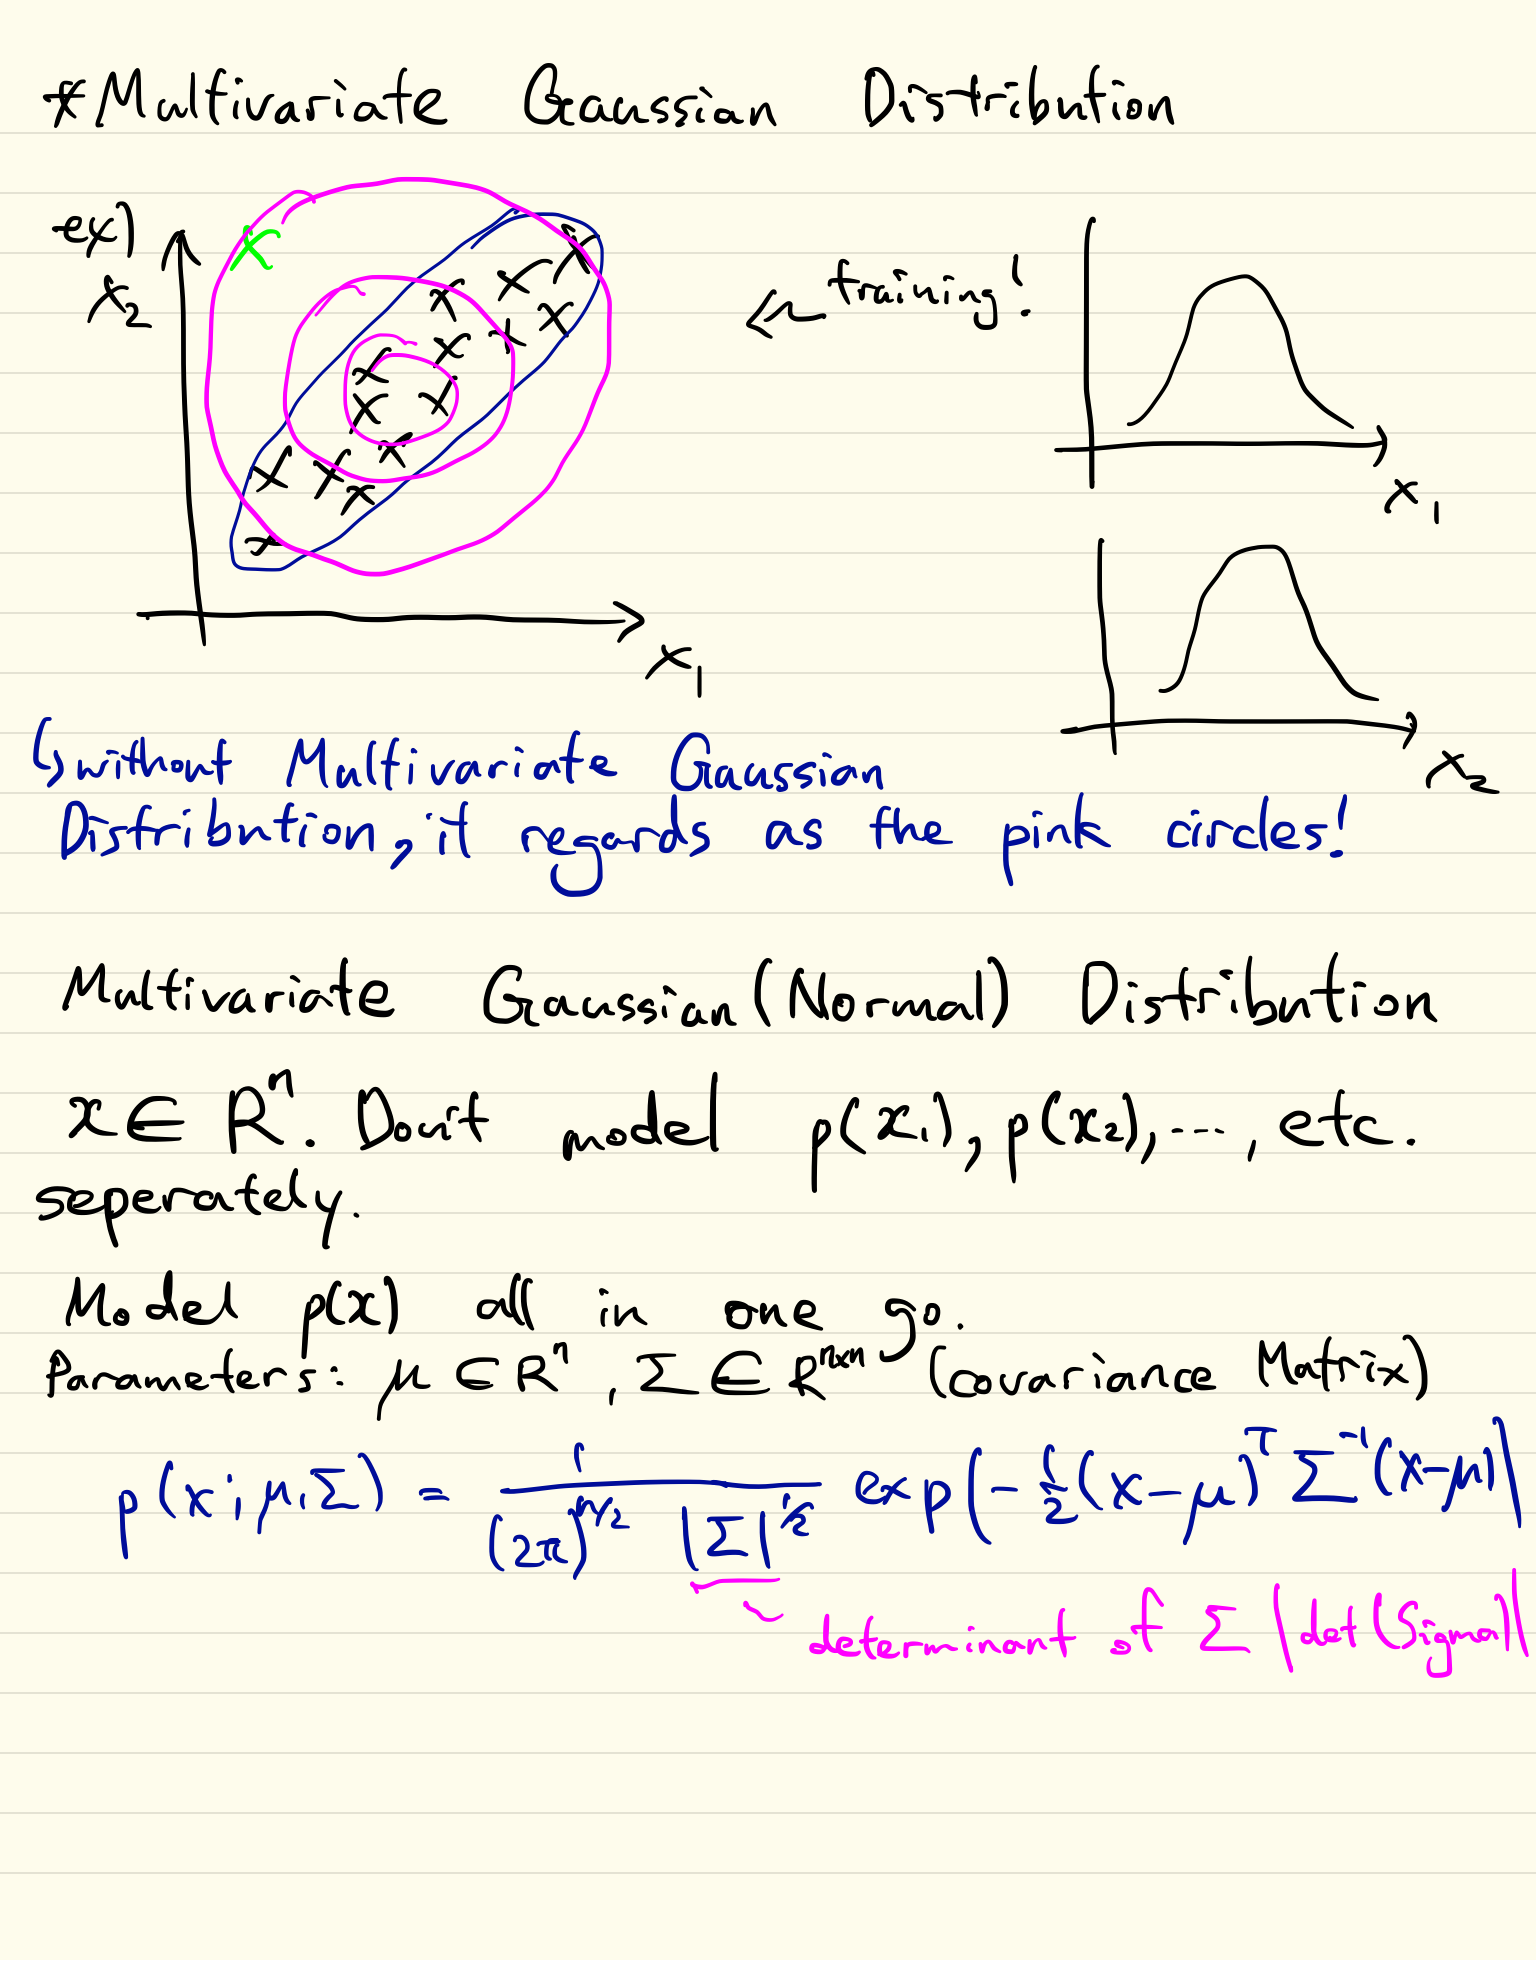 *Multivariate Gaussian Distribution
ex)
x₂
← training!
x₁
x₁
x₂
↳ without Multivariate Gaussian
Distribution, it regards as the pink circles!
Multivariate Gaussian (Normal) Distribution
x ∈ Rⁿ. Don't model p(x₁), p(x₂), ..., etc.
seperately.
Model p(x) all in one go.
Parameters: μ ∈ Rⁿ, Σ ∈ Rⁿˣⁿ (covariance Matrix)
p(x; μ, Σ) = 1 / ((2π)^(n/2) |Σ|^(1/2)) exp(-1/2 (x-μ)ᵀ Σ⁻¹ (x-μ))
determinant of Σ |det(Sigma)|